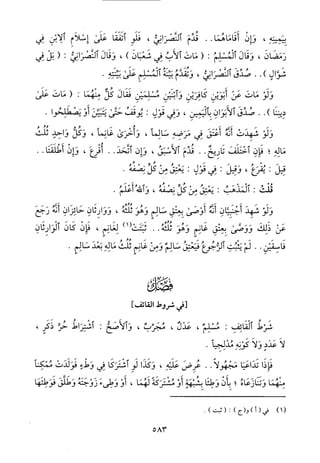 بِيَمِينِهِ ، وَإِنْ أَقَامَاهُمَا.. قُدِّمَ ٱلنَّصْرَانِيُّ ، فَلَوِ ٱتَّفَقَا عَلَىٰ إِسْلَامِ ٱلِٱبْنِ فِي
رَمَضَانَ ، وَقَالَ ٱلْمُسْلِمُ : ( مَاتَ ٱلْأَبُ فِي شَعْبَانَ ) ، وَقَالَ ٱلنَّصْرَانِيُّ : ( بَلْ فِي
شَوَّالٍ ).. صُدِّقَ ٱلنَّصْرَانِيُّ ، وَتُقَدَّمُ بَيِّنَةُ ٱلْمُسْلِمِ عَلَىٰ بَيِّنَتِهِ .
وَلَوْ مَاتَ عَنْ أَبَوَيْنِ كَافِرَيْنِ وَٱبْنَيْنِ مُسْلِمَيْنِ فَقَالَ كُلٌّ مِنْهُمَا : ( مَاتَ عَلَىٰ
دِينِنَا ).. صُدِّقَ ٱلْأَبَوَانِ بِٱلْيَمِينِ ، وَفِي قَوْلٍ : يُوقَفُ حَتَّىٰ يَتَبَيَّنَ أَوْ يَصْطَلِحُوا .
وَلَوْ شَهِدَتْ أَنَّهُ أَعْتَقَ فِي مَرَضِهِ سَالِماً ، وَأُخْرَىٰ غَانِماً ، وَكُلُّ وَاحِدٍ ثُلُثُ
مَالِهِ ؛ فَإِنِ ٱخْتَلَفَ تَارِيخٌ.. قُدِّمَ ٱلْأَسْبَقُ ، وَإِنِ ٱتَّحَدَ.. أُقْرِعَ ، وَإِنْ أُطْلِقَتَا..
قِيلَ : يُقْرَعُ ، وَقِيلَ : فِي قَوْلٍ : يَعْتِقُ مِنْ كُلٍّ نِصْفُهُ .
قُلْتُ : ٱلْمَذْهَبُ : يَعْتِقُ مِنْ كُلٍّ نِصْفُهُ ، وَٱللهُ أَعْلَمُ .
وَلَوْ شَهِدَ أَجْنَبِيَّانِ أَنَّهُ أَوْصَىٰ بِعِتْقِ سَالِمٍ وَهُوَ ثُلُثُهُ ، وَوَارِثَانِ حَائِزَانِ أَنَّهُ رَجَعَ
عَنْ ذَلِكَ وَوَصَّىٰ بِعِتْقِ غَانِمٍ وَهُوَ ثُلُثُهُ.. ثَبَتَتْ(١) لِغَانِمٍ ، فَإِنْ كَانَ ٱلْوَارِثَانِ
فَاسِقَيْنِ.. لَمْ يَثْبُتِ ٱلرُّجُوعُ فَيَعْتِقُ سَالِمٌ وَمِنْ غَانِمٍ ثُلُثُ مَالِهِ بَعْدَ سَالِمٍ .
فَصْلٌ
[في شروط القائف]
شَرْطُ ٱلْقَائِفِ : مُسْلِمٌ ، عَدْلٌ ، مُجَرَّبٌ ، وَٱلْأَصَحُّ : ٱشْتِرَاطُ حُرٍّ ذَكَرٍ ،
لَا عَدَدٍ وَلَا كَوْنِهِ مُدْلِجِيّاً .
فَإِذَا تَدَاعَيَا مَجْهُولاً.. عُرِضَ عَلَيْهِ ، وَكَذَا لَوِ ٱشْتَرَكَا فِي وَطْءٍ فَوَلَدَتْ مُمْكِناً
مِنْهُمَا وَتَنَازَعَاهُ ؛ بِأَنْ وَطِئَا بِشُبْهَةٍ أَوْ مُشْتَرَكَةً لَهُمَا ، أَوْ وَطِىءَ زَوْجَتَهُ وَطَلَّقَ فَوَطِئَهَا
(١) في ( أ ) و( ج ) : ( ثبت ) .
٥٨٣